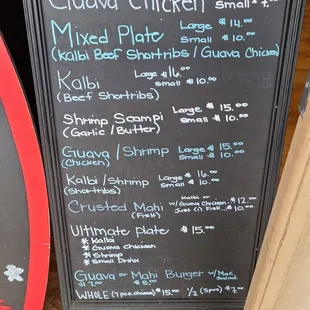 Guava Chicken Small $ 9.00
Mixed Plate Large $ 14.00
Small $ 10.00
(Kalbi Beef Shortribs / Guava Chicken)
Kalbi Large $ 16.00
(Beef Shortribs) Small $ 10.00
Shrimp Scampi Large $ 15.00
(Garlic / Butter) Small $ 10.00
Guava / Shrimp Large $ 15.00
(Chicken) Small $ 10.00
Kalbi / Shrimp Large $ 16.00
(Shortribs) Small $ 10.00
Crusted Mahi Kalbi or
w/ Guava Chicken.. $ 12.00
(Fish) Just (1) Fish.. $ 10.00
Ultimate Plate $ 15.00
* Kalbi
* Guava Chicken
* Shrimp
* Small Drink
Guava or Mahi Burger w/ Mac Salad
$ 7.00 $ 8.00
WHOLE (7 pc chicken) $ 15.00 1/2 (3 pcs) $ 7.00